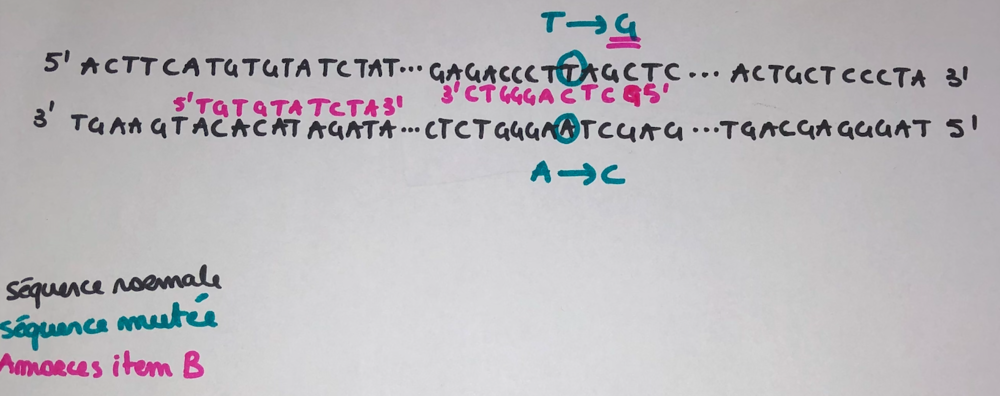 T→G
5' ACTTCATGTGTATCTAT... GAGACCCTTAGCTC ... ACTGCTCCCTA 3'
5'TGTGTATCTA3' 3'CTGGGACTCG5'
3' TGAAGTACACATAGATA...CTCTGGGAATCGAG ...TGACGAGGGAT 5'
A→C
séquence normale
séquence mutée
Amorces item B